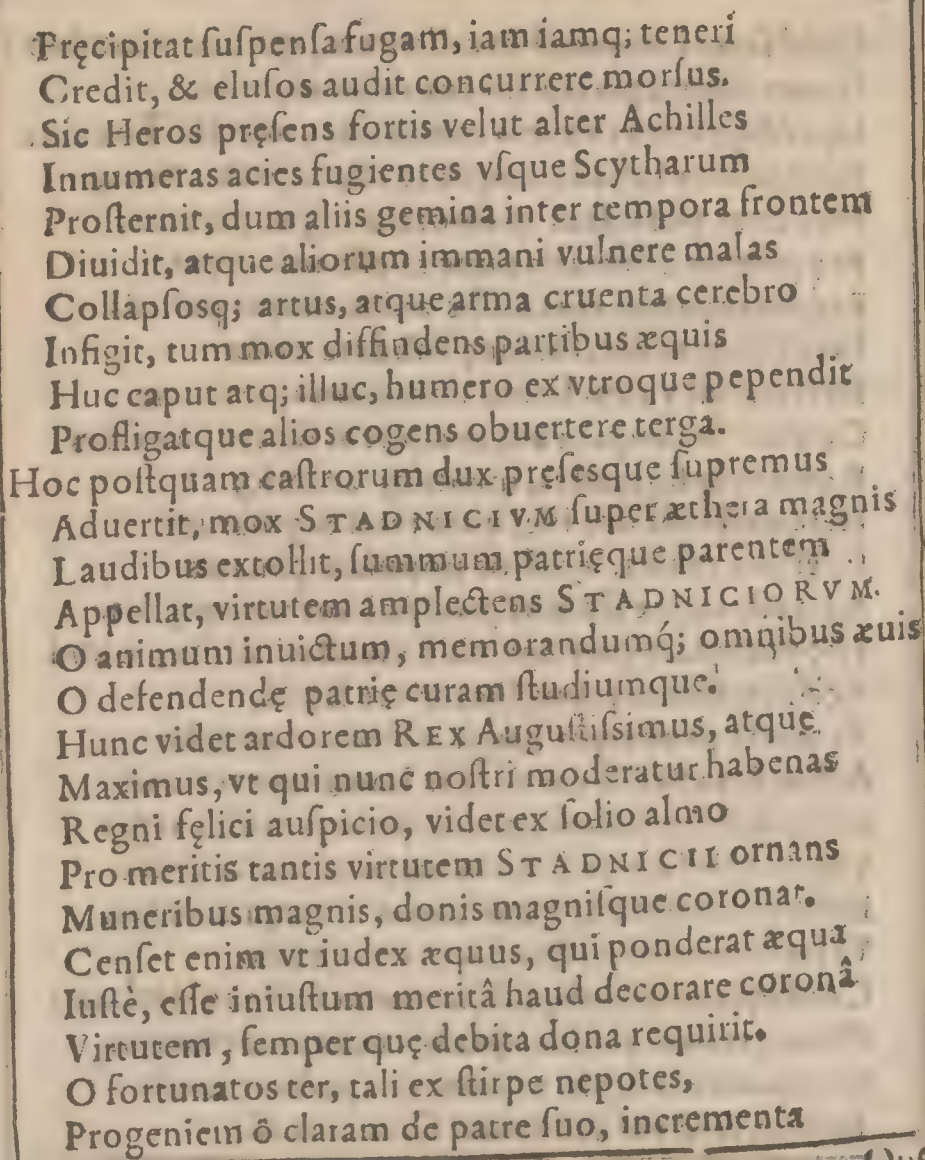 Fręcipitat ſuſpenſa fugam, iam iamq; teneri
Credit, & eluſos audit concurrere morſus.
Sic Heros pręſens fortis velut alter Achilles
Innumeras acies fugientes vſque Scytharum
Proſternit, dum aliis gemina inter tempora frontem
Diuidit, atque aliorum immani vulnere malas
Collapſosq; artus, atque arma cruenta cerebro
Infigit, tum mox diffindens partibus æquis
Huc caput atq; illuc, humero ex vtroque pependit
Profligatque alios cogens obuertere terga.
Hoc poſtquam caſtrorum dux pręſesque ſupremus
Aduertit, mox STADNICIVM ſuper æthera magnis
Laudibus extollit, ſummum patrięque parentem
Appellat, virtutem amplectens STADNICIORVM.
O animum inuictum, memorandumq́; omnibus æuis
O defendendę patrię curam ſtudiumque.
Hunc videt ardorem REX Auguſtiſsimus, atque
Maximus, vt qui nunc noſtri moderatur habenas
Regni fęlici auſpicio, videt ex ſolio almo
Pro meritis tantis virtutem STADNICII ornans
Muneribus magnis, donis magniſque coronat.
Cenſet enim vt iudex æquus, qui ponderat æqua
Iuſtè, eſſe iniuſtum meritâ haud decorare coronâ
Virtutem, ſemper quę debita dona requirit.
O fortunatos ter, tali ex ſtirpe nepotes,
Progeniem ô claram de patre ſuo, incrementa